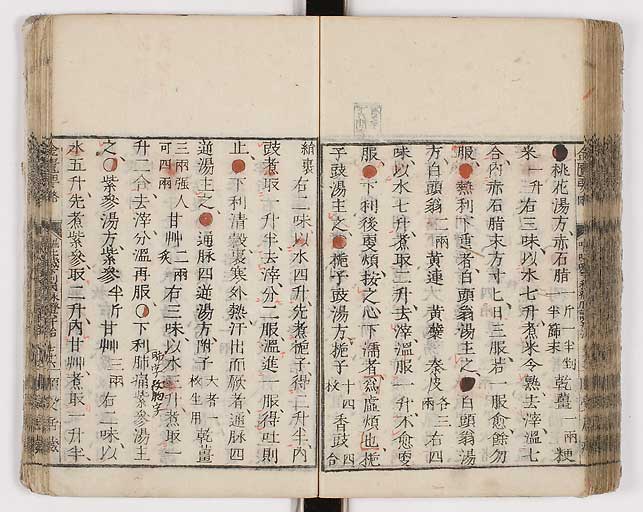 桃花湯方赤石脂一斤一半剉一半篩末乾薑一兩粳
米一升右三味以水七升煮米令熟去滓溫七
合內赤石脂末方寸匕日三服若一服愈餘勿
服熱利下重者白頭翁湯主之白頭翁湯
方白頭翁二兩黃連黃蘗秦皮各三兩右四
味以水七升煮取二升去滓溫服一升不愈更
服下利後更煩按之心下濡者為虛煩也梔
子豉湯主之梔子豉湯方梔子十四枚香豉四合
綿裹右二味以水四升先煮梔子得二升半內
豉煮取一升半去滓分二服溫進一服得吐則
止下利清穀裏寒外熱汗出而厥者通脉四
逆湯主之通脉四逆湯方附子大者一枚生用乾薑
三兩強人可四兩甘艸二兩炙右三味以水三升煮取一
升二合去滓分溫再服下利肺痛紫參湯主
之紫參湯方紫參半斤甘艸三兩右二味以
水五升先煮紫參取二升內甘艸煮取一升半
金匱要略